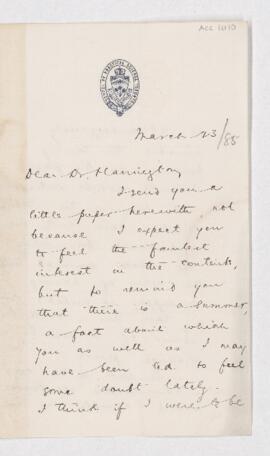 Acc 1410
SCHOOL OF PRACTICAL SCIENCE TORONTO
March 23/85
Dear Dr. Harrington,
I send you a
little paper herewith, not
because I expect you
to feel the faintest
interest in the contents,
but to remind you
that there is a summer,
a fact about which
you as well as I may
have been led to feel
some doubt lately.
I think if I were to be